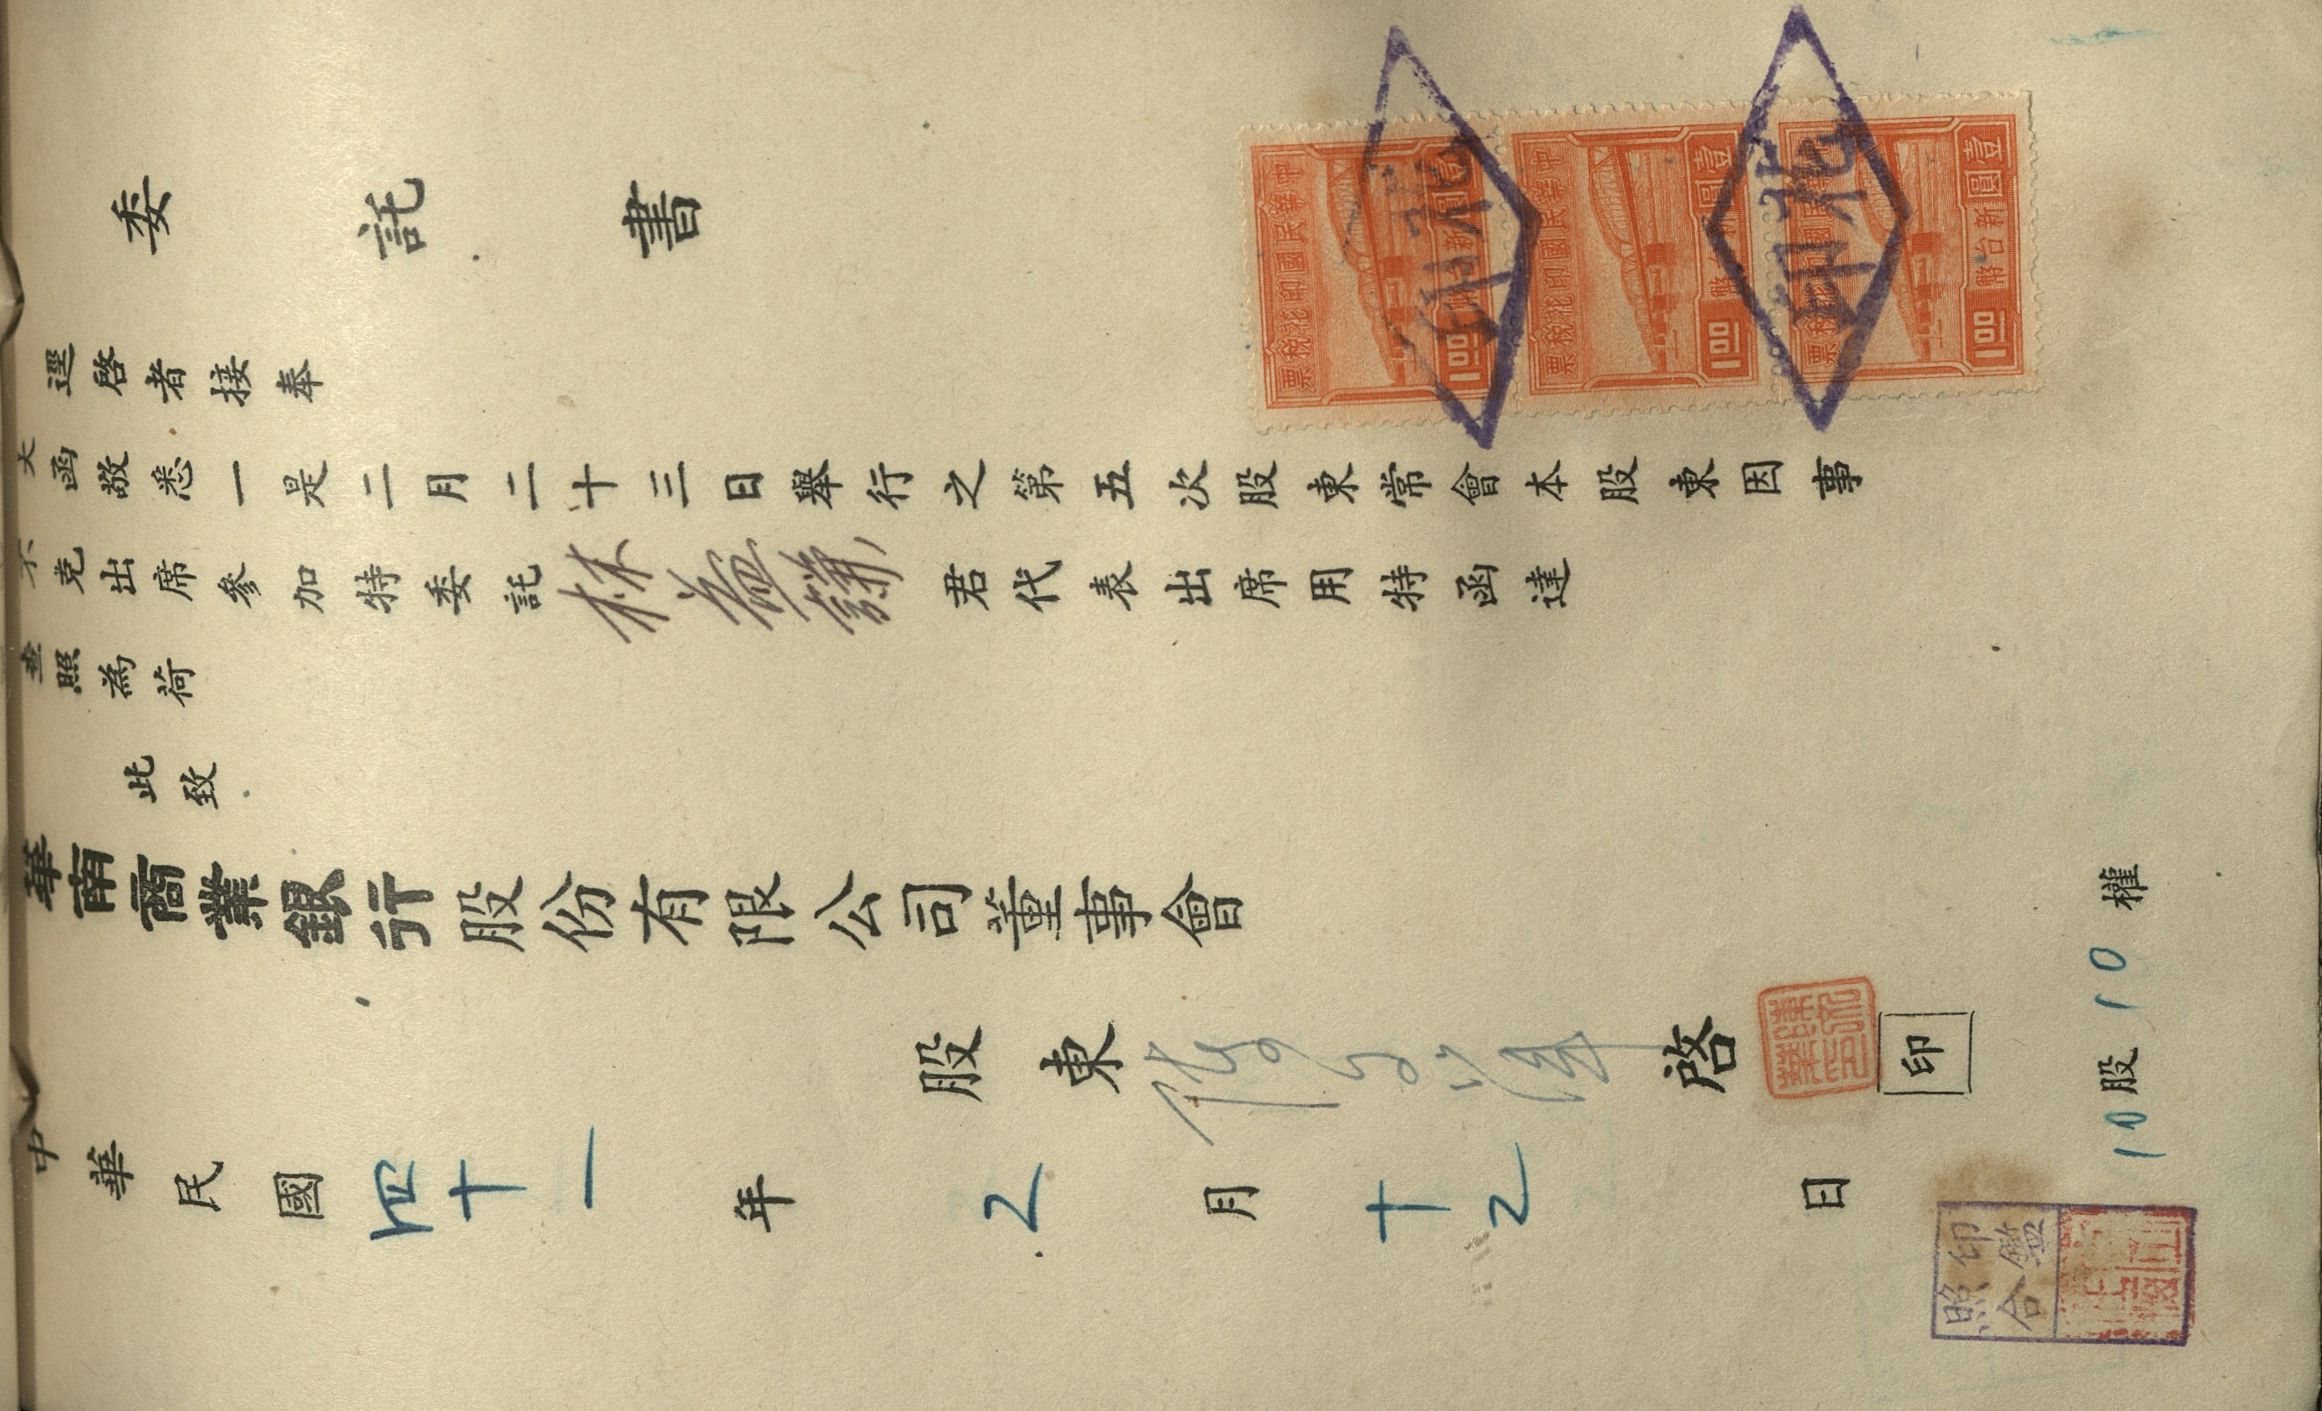 委託書
逕啓者接奉
大函敬悉一是二月二十三日舉行之第五次股東常會本股東因事
不克出席參加特委託林益謙君代表出席用特函達
查照為荷
此致
華南商業銀行股份有限公司董事會
股東 啓
印
中華民國四十一年2月十2日
10股10權
中華民國印花稅票
壹圓新台幣
1.00
中華民國印花稅票
壹圓新台幣
1.00
中華民國印花稅票
壹圓新台幣
1.00
印鑑
照合